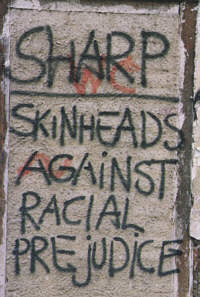 SHARP
SKINHEADS
AGAINST
RACIAL
PREJUDICE